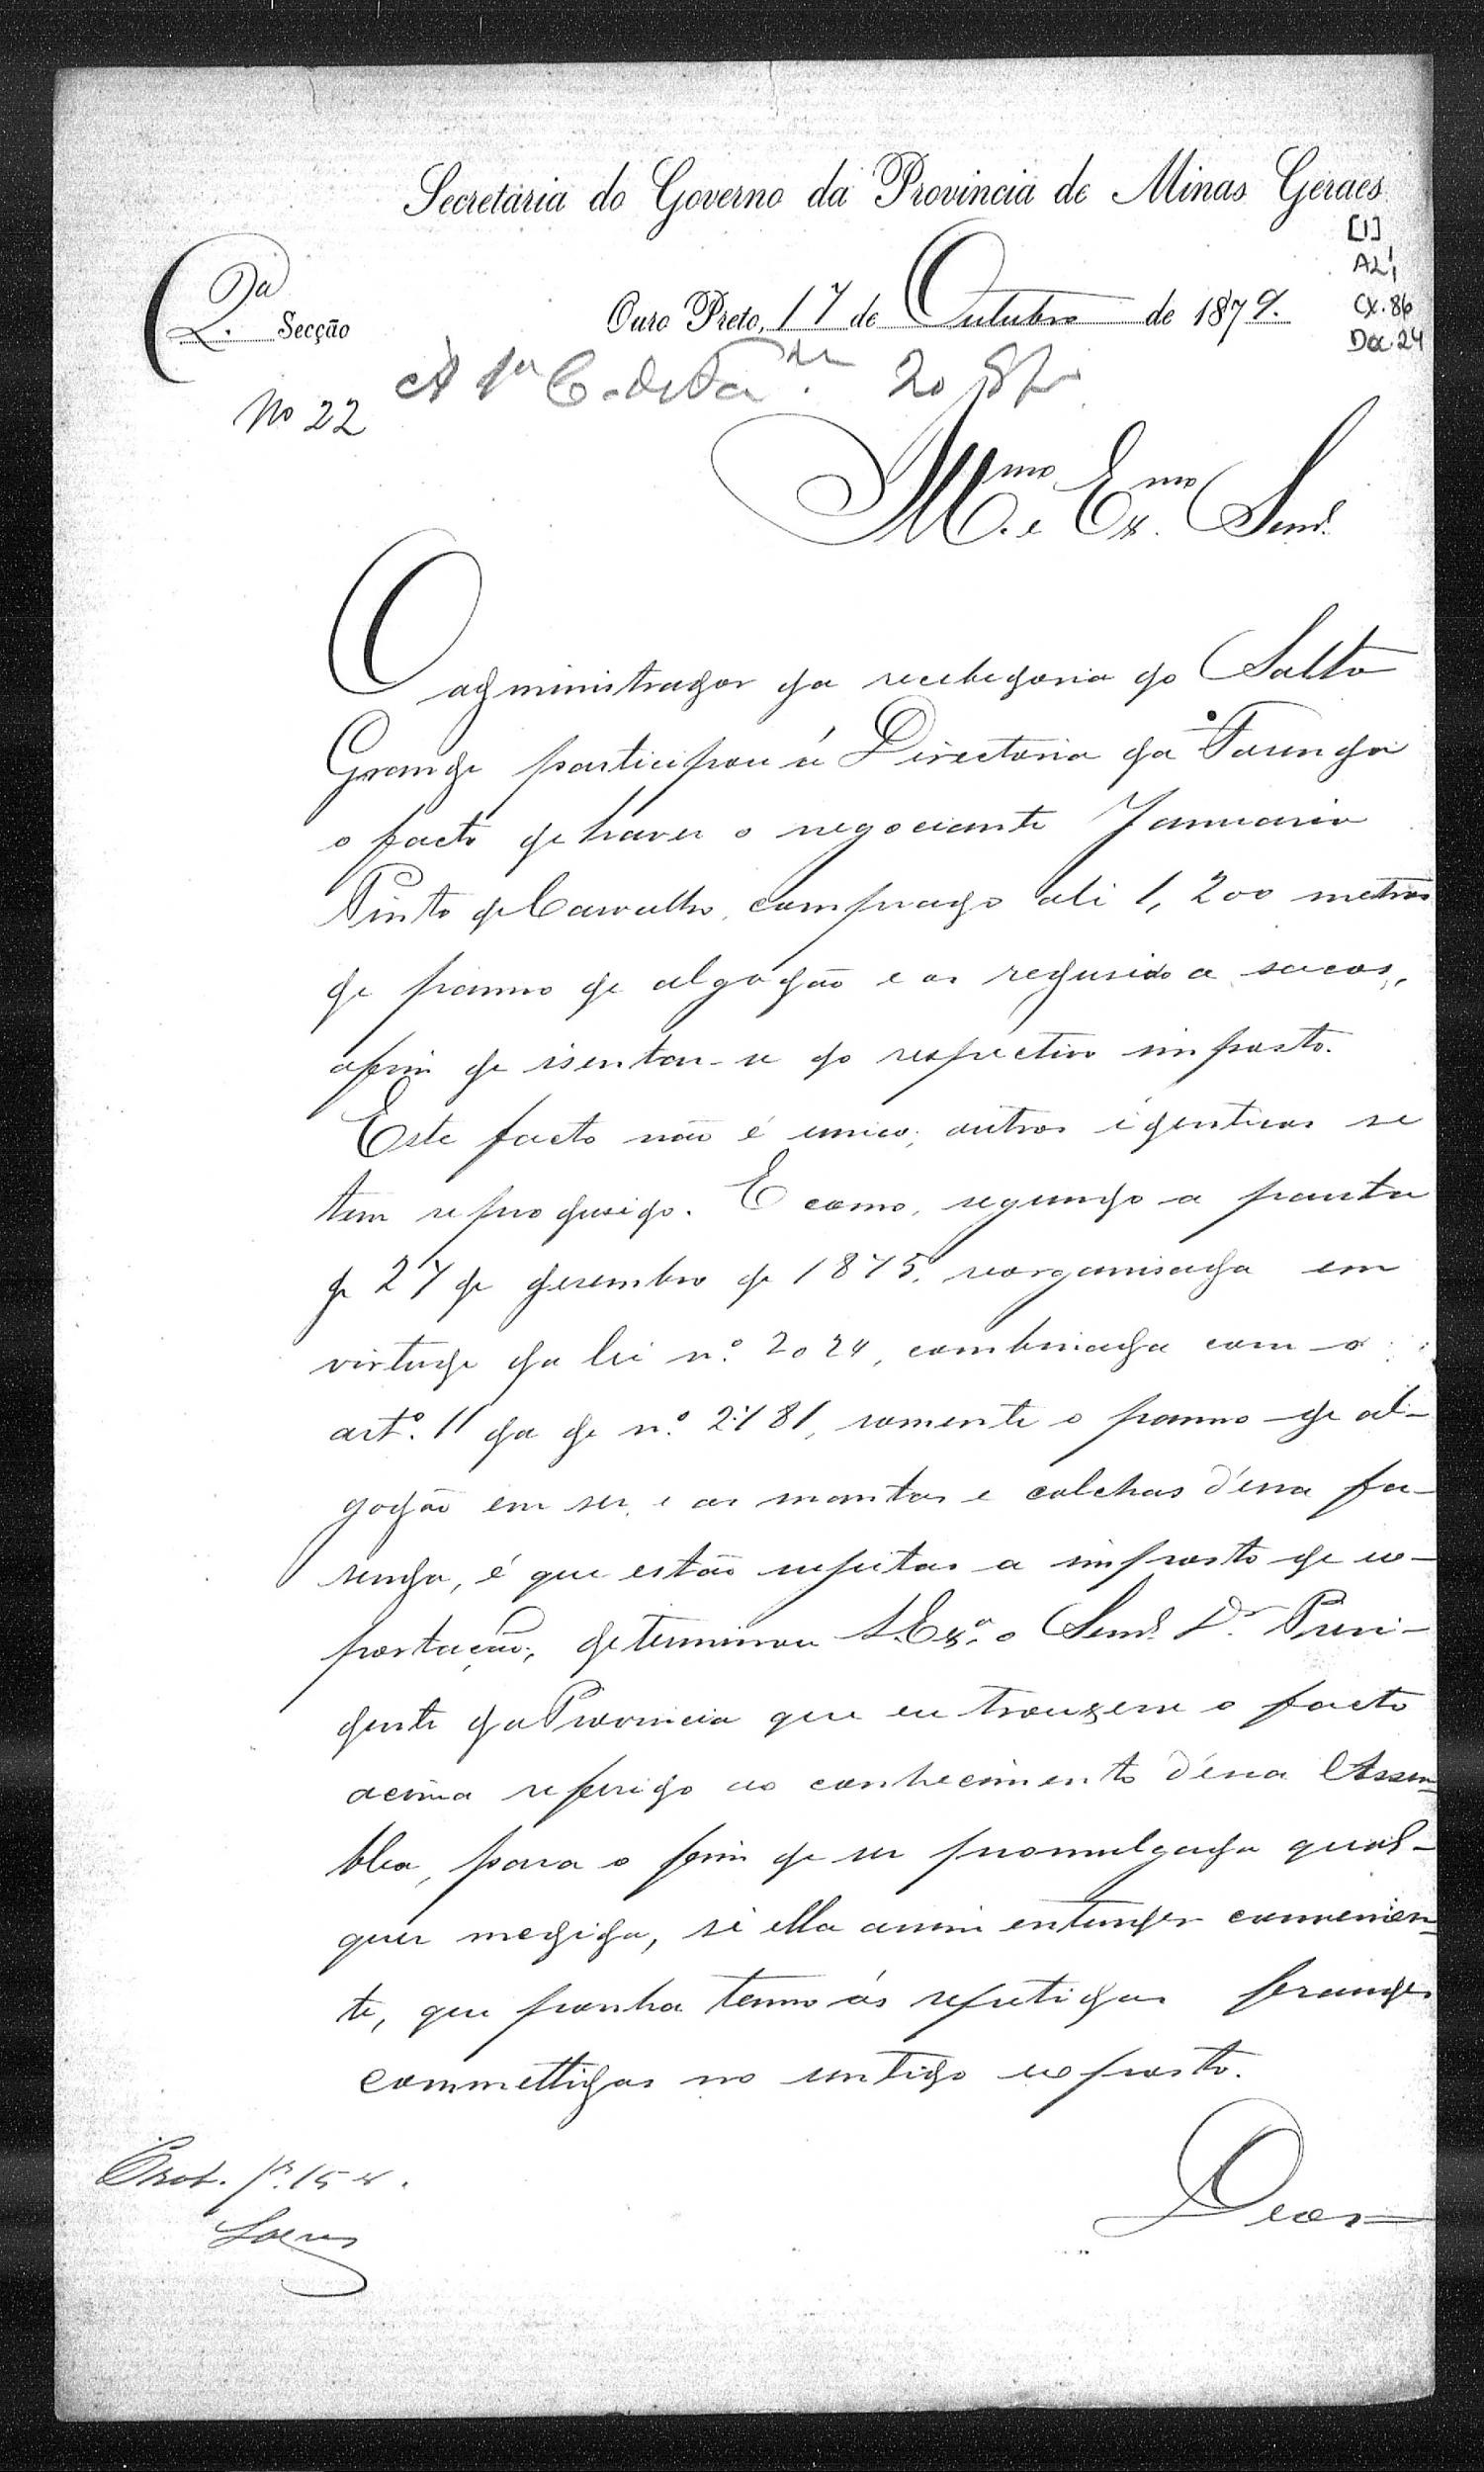 Secretaria do Governo da Provincia de Minas Geraes
[1]
AL1
Cx. 86
Doc. 24
2.ª Secção
Ouro Preto, 17 de Outubro de 1879.
Á 1ª C. de Faz.da 20
Nº 22
Ill.mo e Ex.mo Senr.
O administrador da recebedoria do Salto
Grande participou á Directoria da Fazenda
o facto de haver o negociante Januario
Pinto de Carvalho, comprado ali 1,200 metros
de panno de algodão e os redusido a sacos,
afim de isentar-se do respectivo imposto.
Este facto não é unico; outros identicos se
tem reprodusido. E como, segundo a pauta
de 27 de desembro de 1875, reorganisada em
virtude da lei n.º 2024, combinada com o
art.º 11 da de n.º 2481, somente o panno de al-
godão em ser, e as mantas e colchas d'essa fa-
senda, é que estão sujeitas a imposto de ex-
portação; determinou S. Ex.ª o Senr. Dr. Presi-
dente da Provincia que eu trouxesse o facto
acima referido ao conhecimento d'essa Assem-
blea, para o fim de ser promulgada qual-
quer medida, si ella assim entender convenien-
te, que ponha termo ás repetidas fraudes
commettidas no sentido exposto.
Deos
Prot. p. 154.